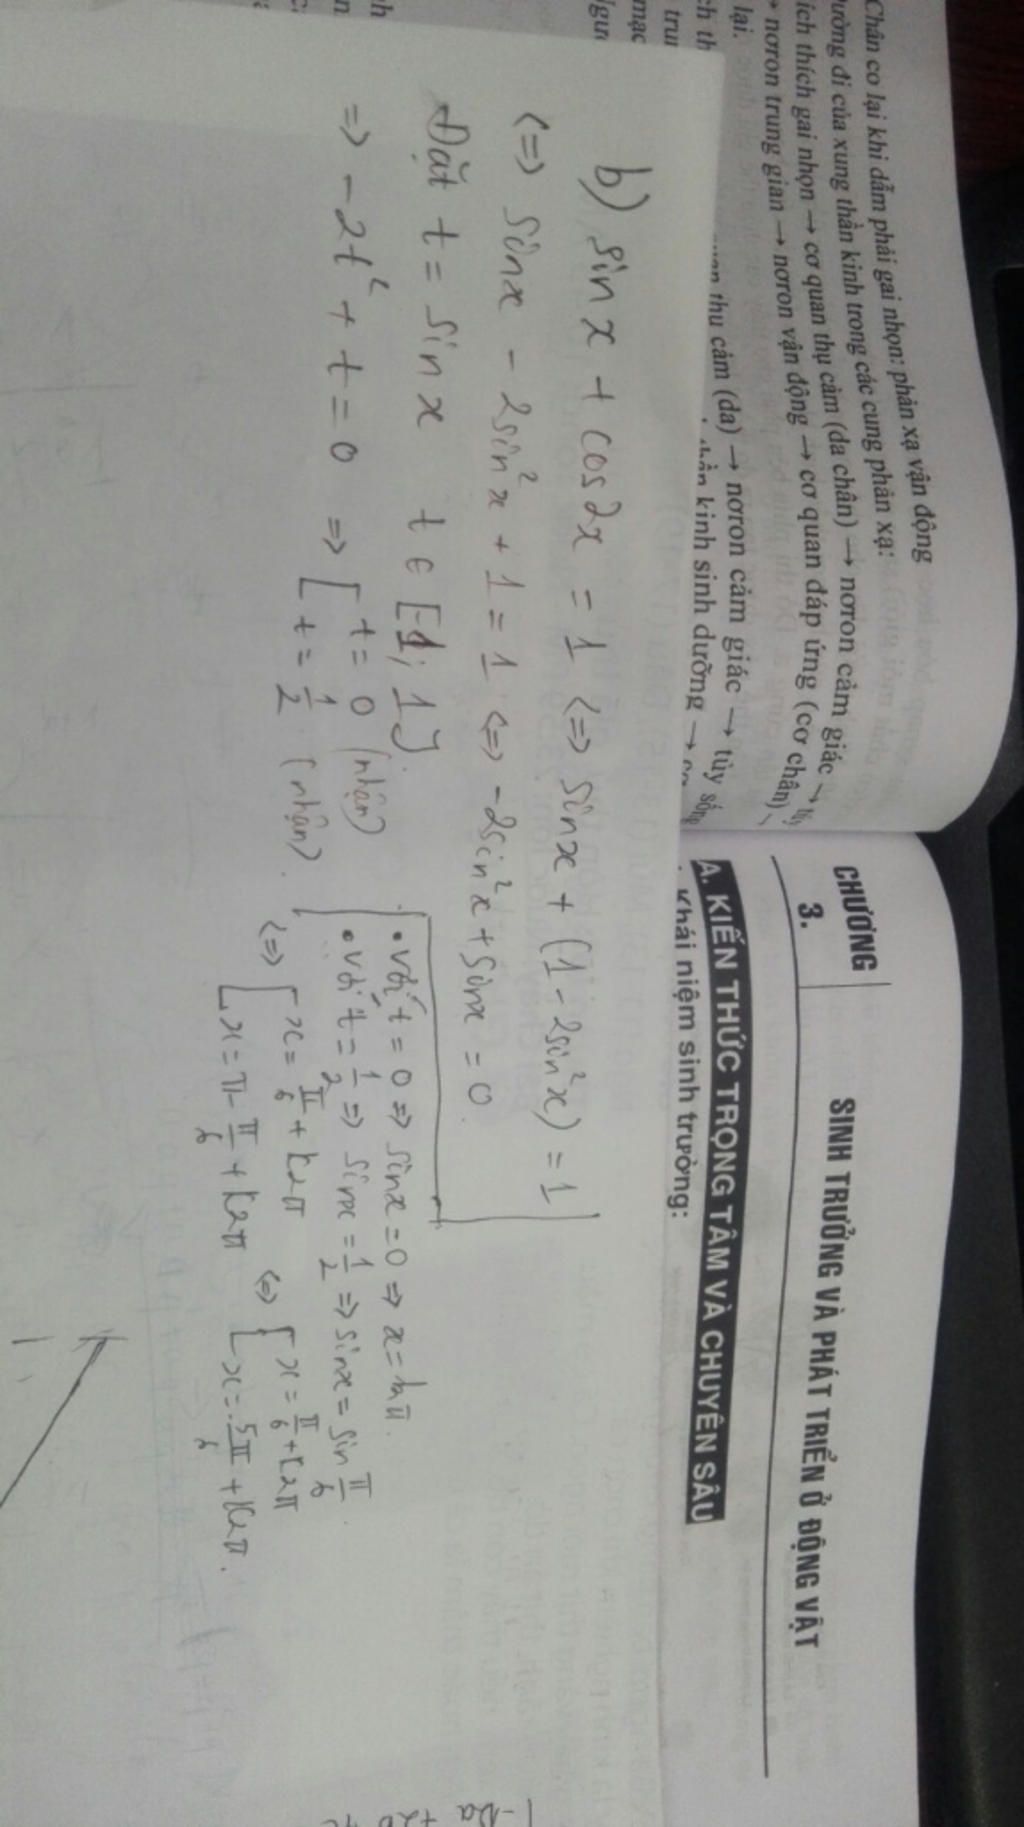 Chân co lại khi dẫm phải gai nhọn: phản xạ vận động
đường đi của xung thần kinh trong các cung phản xạ:
ích thích gai nhọn → cơ quan thụ cảm (da chân) → nơron cảm giác → tủy
→ nơron trung gian → nơron vận động → cơ quan đáp ứng (cơ chân)
lại.
thụ cảm (da) → nơron cảm giác → tủy sống
kinh sinh dưỡng →
CHƯƠNG 3.
SINH TRƯỞNG VÀ PHÁT TRIỂN Ở ĐỘNG VẬT
A. KIẾN THỨC TRỌNG TÂM VÀ CHUYÊN SÂU
Khái niệm sinh trưởng:
b) sin x + cos2x = 1 <=> sinx + (1 - 2sin²x) = 1
<=> sinx - 2sin²x + 1 = 1 <=> -2sin²x + sinx = 0.
Đặt t = sin x t ∈ [-1; 1].
=> -2t² + t = 0 => [ t = 0 (nhận)
t = 1/2 (nhận).
• Với t = 0 => sinx = 0 => x = kπ.
• Với t = 1/2 => sinx = 1/2 => sinx = sin π/6.
<=> [ x = π/6 + k2π <=> [ x = π/6 + k2π
x = π - π/6 + k2π x = 5π/6 + k2π.